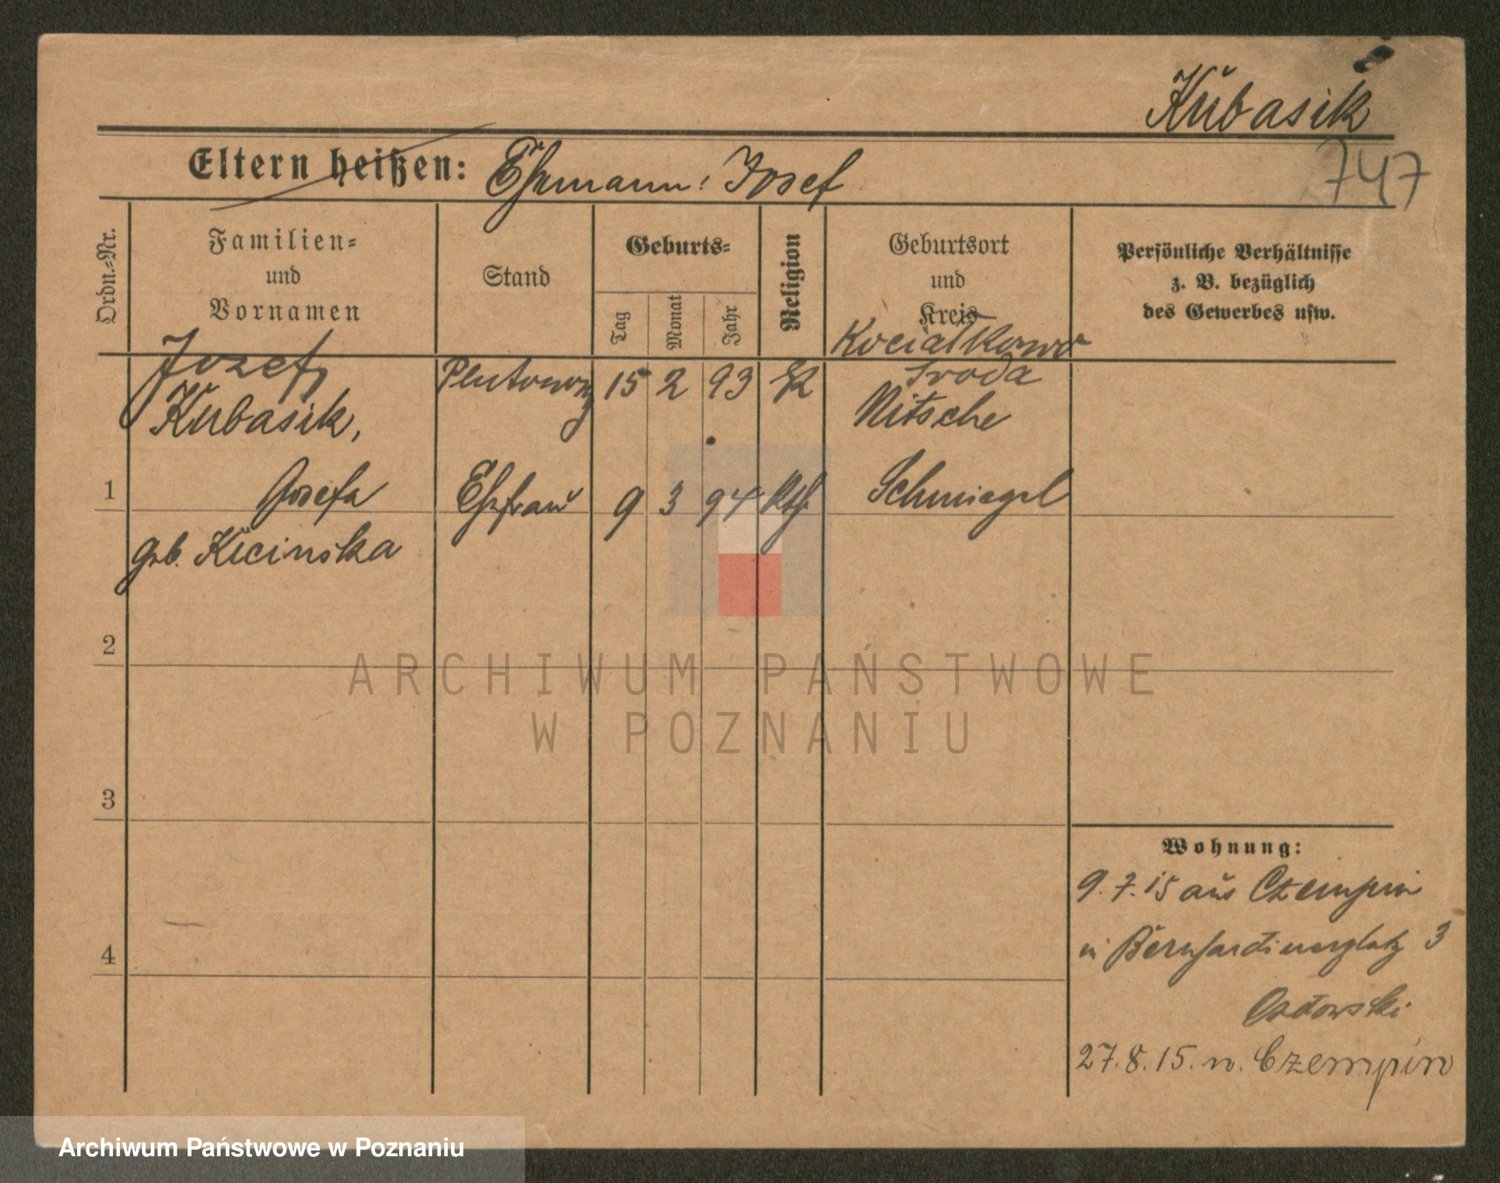 Kubasik
747
Eltern heißen: Ehemann: Josef
Ordn.-Nr.
Familien-
und
Vornamen
Stand
Geburts-
Tag
Monat
Jahr
Religion
Geburtsort
und
Kreis
Persönliche Verhältnisse
z. B. bezüglich
des Gewerbes usw.
Józef, Plutonowy 15 2 93 rk Kociałkowo
Środa
Kubasik,
Nitsche
1 Josefa Ehefrau 9 3 94 kth. Schmiegel
geb. Kicinska
2
3
4
Wohnung:
9.7.15 aus Czempin
n Bernhardinerplatz 3
27.8.15. n. Czempin
ARCHIWUM PAŃSTWOWE
W POZNANIU
Archiwum Państwowe w Poznaniu